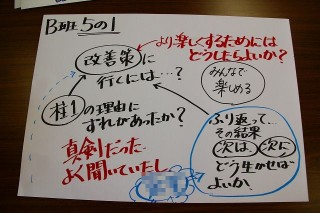 B班 5の1
より楽しくするためには
どうしたらよいか?
改善策に
行くには…?
みんなで
楽しめる
柱1の理由に
ずれがあったか?
真剣だった
よく聞いていたし、
ふり返って…
その結果
次は 次に
どう生かせば
よいか